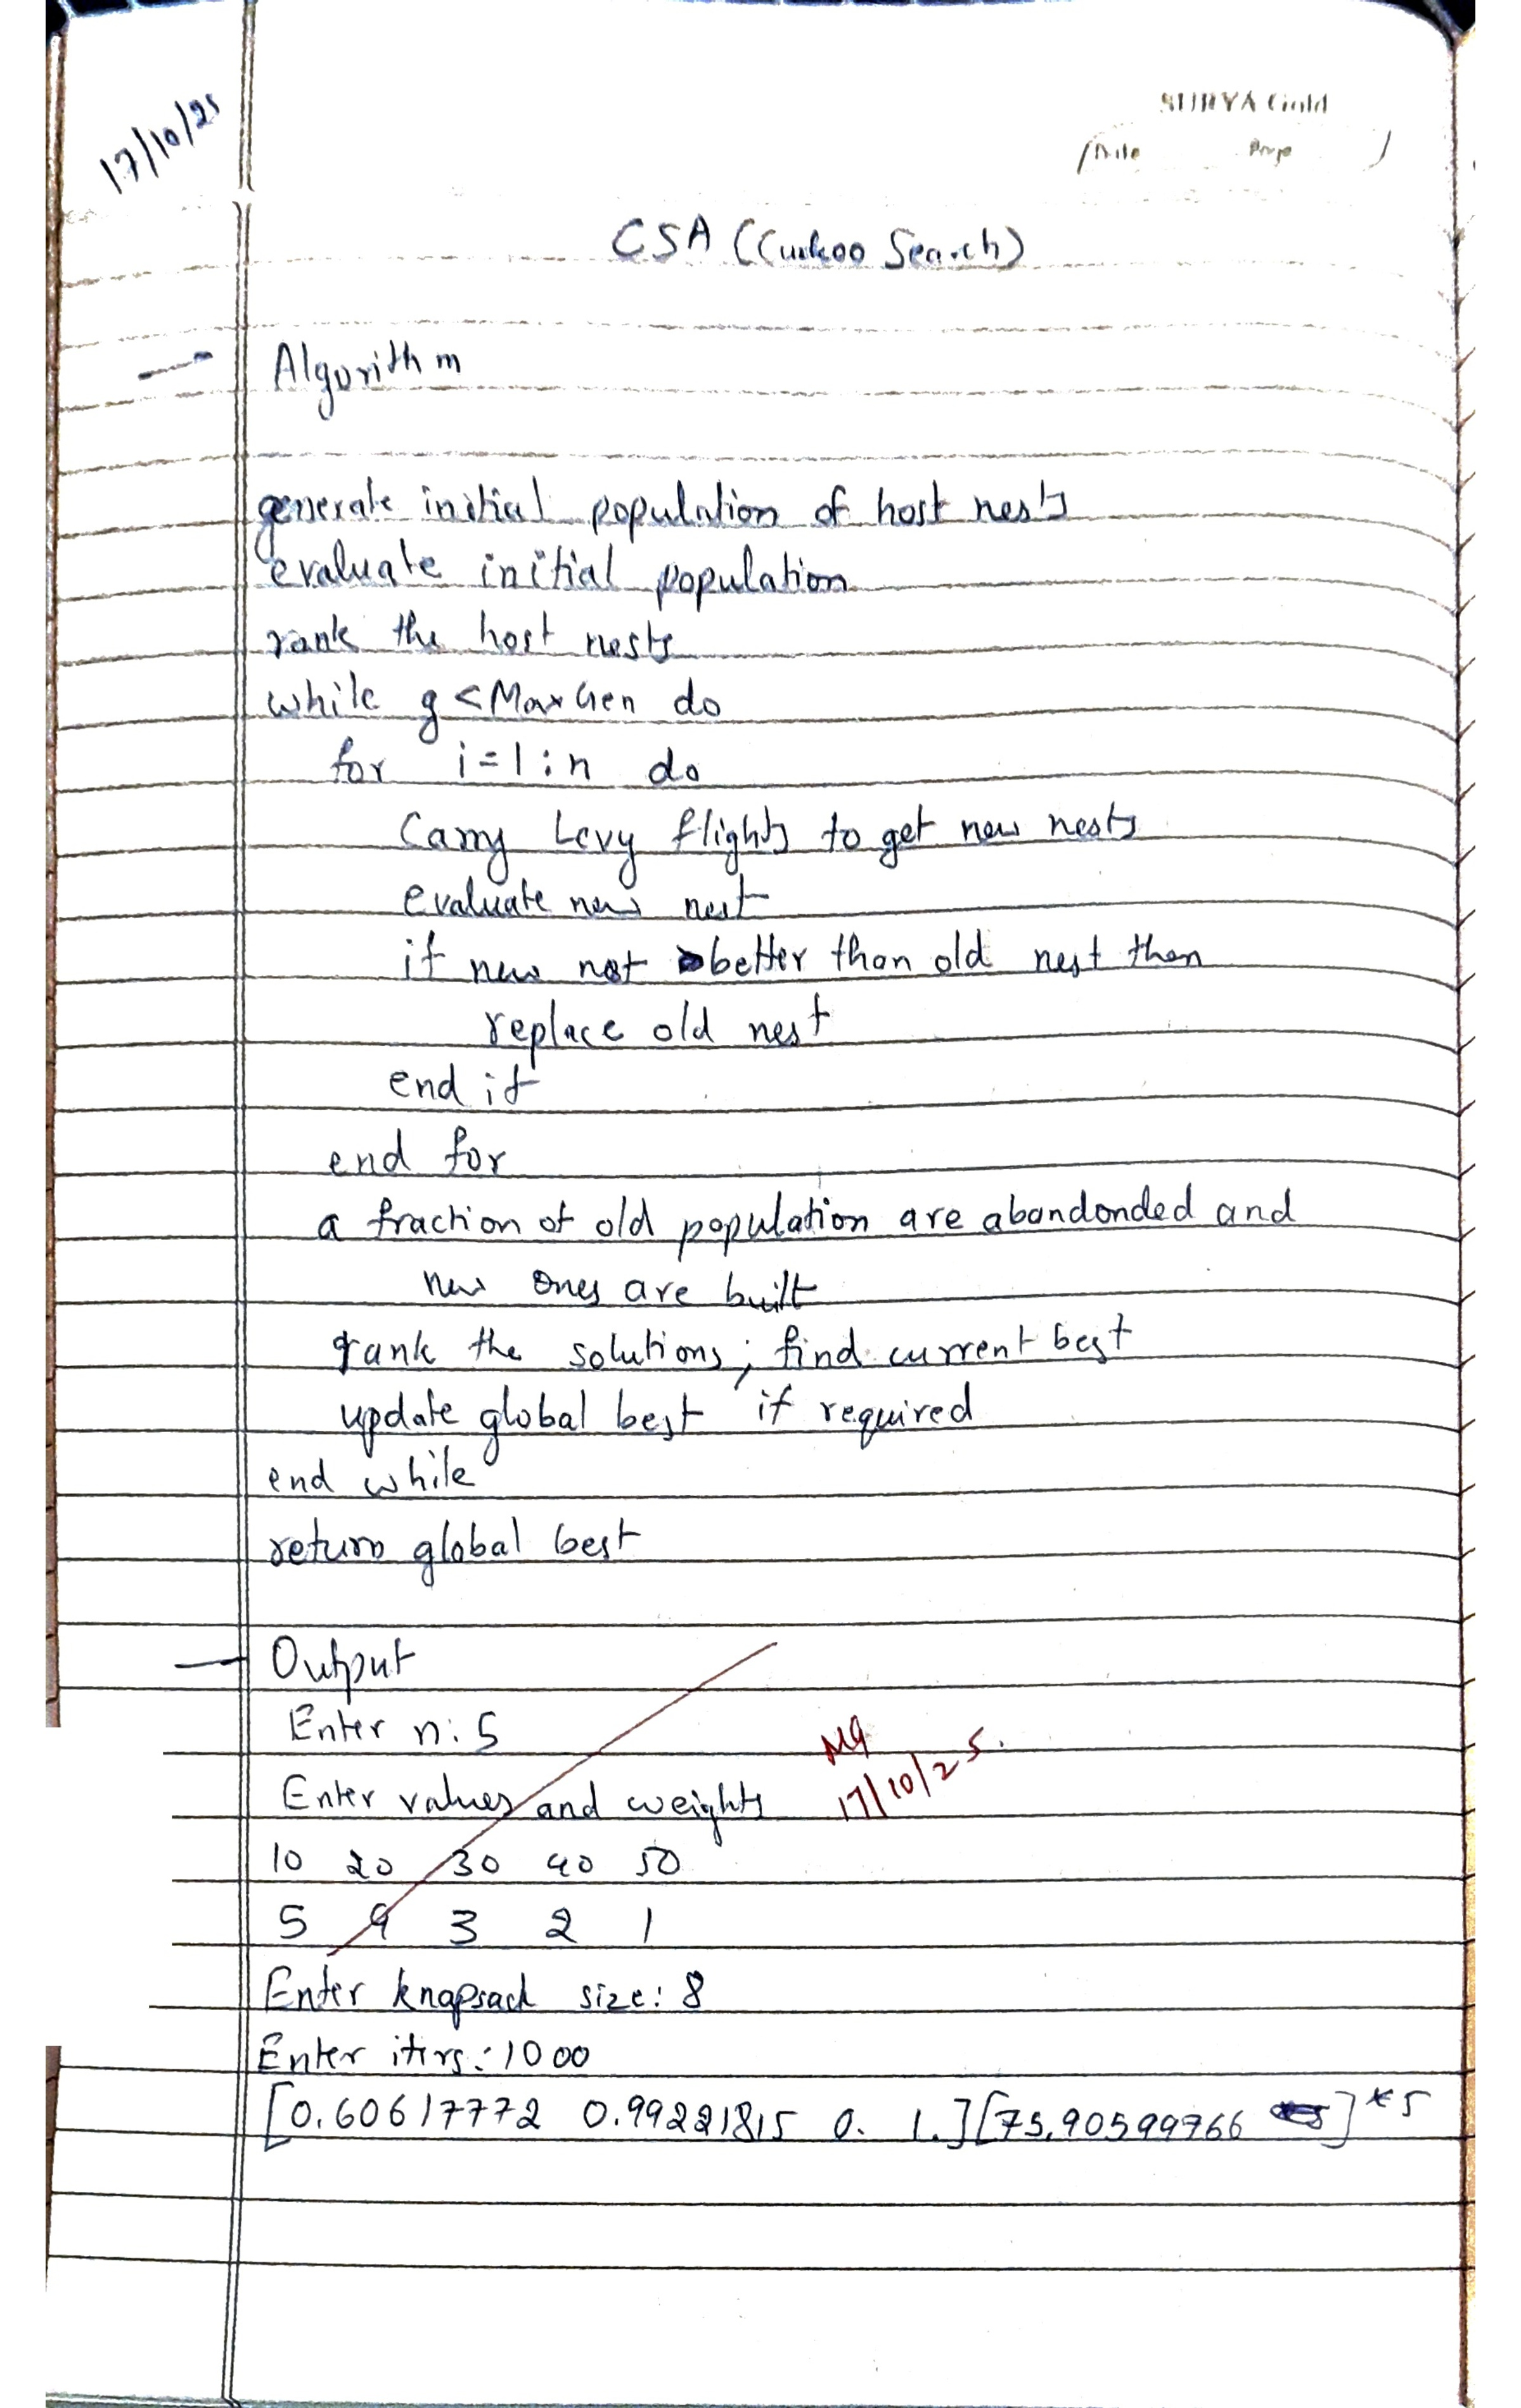 17/10/25
SURYA Gold
Date Page
CSA (Cuckoo Search)
— Algorithm
generate initial population of host nests
evaluate initial population
rank the host nests
while g < MaxGen do
for i = 1 : n do
Carry Levy flights to get new nests
evaluate new nest
if new nest better than old nest then
replace old nest
end if
end for
a fraction of old population are abandonded and
new ones are built
rank the solutions; find current best
update global best if required
end while
return global best
— Output
Enter n: 5
Enter values and weights
17/10/25.
10 20 30 40 50
5 4 3 2 1
Enter knapsack size: 8
Enter iters: 1000
[0.60617772 0.99221815 0. 1.] [75.90599766 ] *5